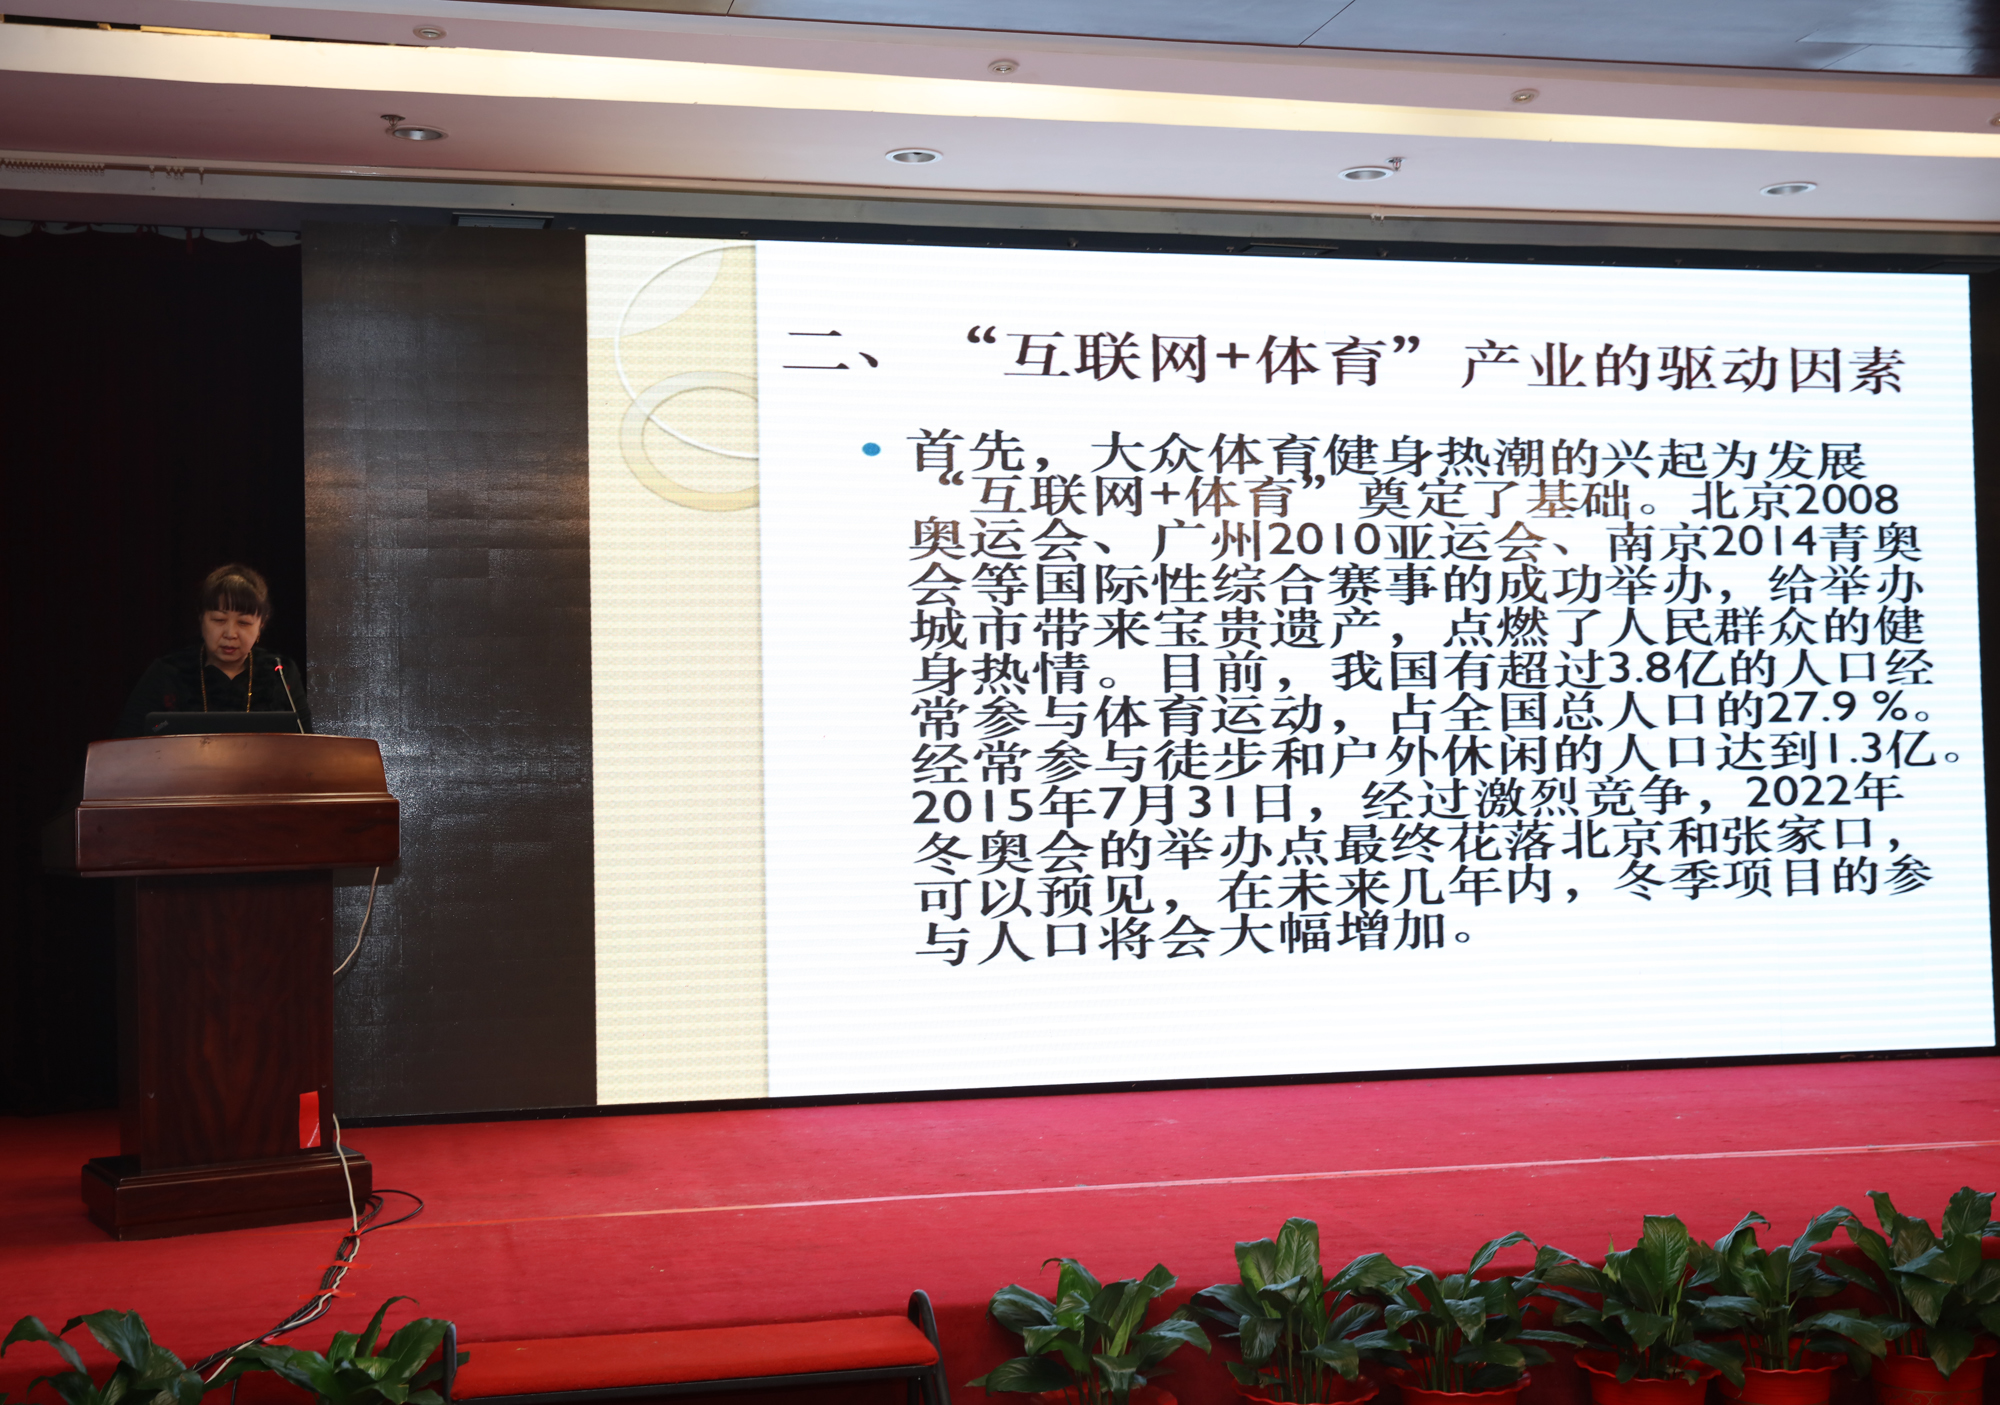 二、 “互联网+体育”产业的驱动因素
首先，大众体育健身热潮的兴起为发展
“互联网+体育”奠定了基础。北京2008
奥运会、广州2010亚运会、南京2014青奥
会等国际性综合赛事的成功举办，给举办
城市带来宝贵遗产，点燃了人民群众的健
身热情。目前，我国有超过3.8亿的人口经
常参与体育运动，占全国总人口的27.9 %。
经常参与徒步和户外休闲的人口达到1.3亿。
2015年7月31日，经过激烈竞争，2022年
冬奥会的举办点最终花落北京和张家口，
可以预见，在未来几年内，冬季项目的参
与人口将会大幅增加。